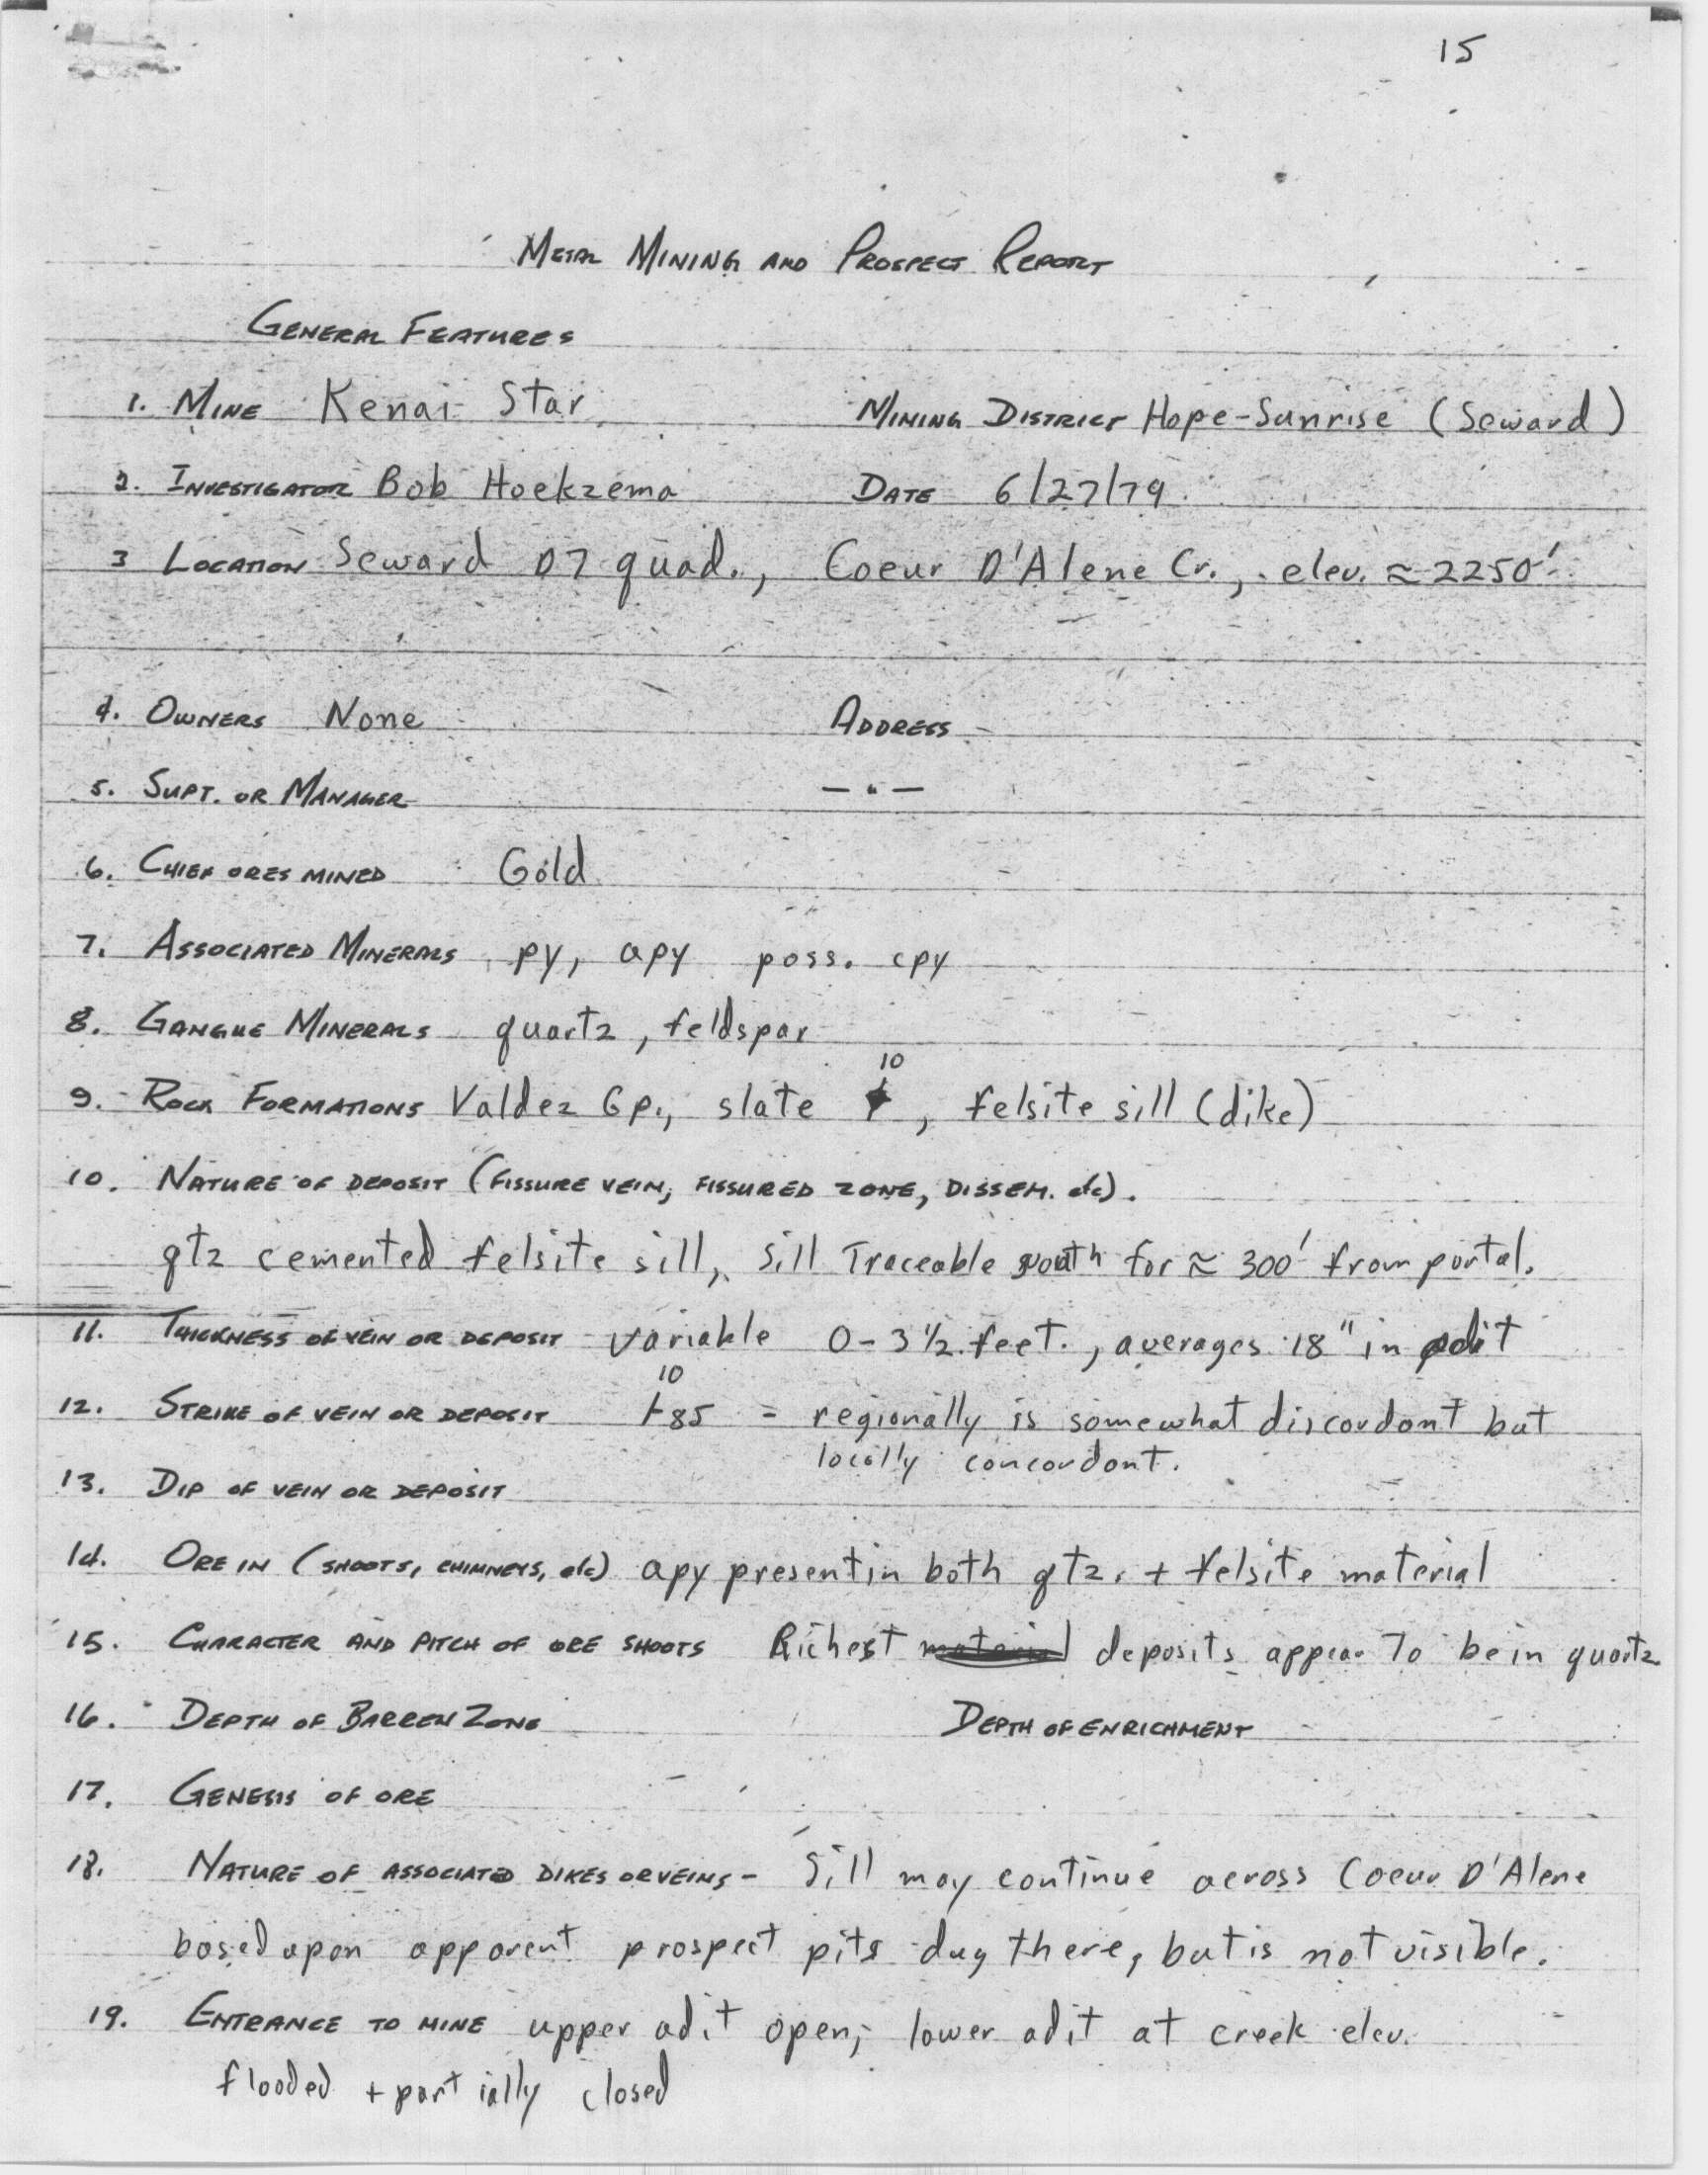 15
METAL MINING AND PROSPECT REPORT
GENERAL FEATURES
1. MINE Kenai Star MINING DISTRICT Hope-Sunrise (Seward)
2. INVESTIGATOR Bob Hoekzema DATE 6/27/79
3 LOCATION Seward D7 quad., Coeur D'Alene Cr., elev. ≈ 2250'
4. OWNERS None ADDRESS
5. SUPT. OR MANAGER — " —
6. CHIEF ORES MINED Gold
7. ASSOCIATED MINERALS py, apy poss. cpy
8. GANGUE MINERALS quartz, feldspar
10
9. ROCK FORMATIONS Valdez Gp., slate, felsite sill (dike)
10. NATURE OF DEPOSIT (FISSURE VEIN, FISSURED ZONE, DISSEM. etc).
qtz cemented felsite sill, sill Traceable south for ≈ 300' from portal.
11. THICKNESS OF VEIN OR DEPOSIT variable 0-3½ feet., averages 18" in adit
10
12. STRIKE OF VEIN OR DEPOSIT 85 - regionally is somewhat discordant but
locally concordant.
13. DIP OF VEIN OR DEPOSIT
14. ORE IN (SHOOTS, CHIMNEYS, etc) apy present in both qtz. + felsite material
15. CHARACTER AND PITCH OF ORE SHOOTS Richest material deposits appear To be in quartz
16. DEPTH OF BARREN ZONE DEPTH OF ENRICHMENT
17. GENESIS OF ORE
18. NATURE OF ASSOCIATED DIKES OR VEINS - Sill may continue across Coeur D'Alene
based upon apparent prospect pits dug there, but is not visible.
19. ENTRANCE TO MINE upper adit open; lower adit at creek elev.
flooded + partially closed